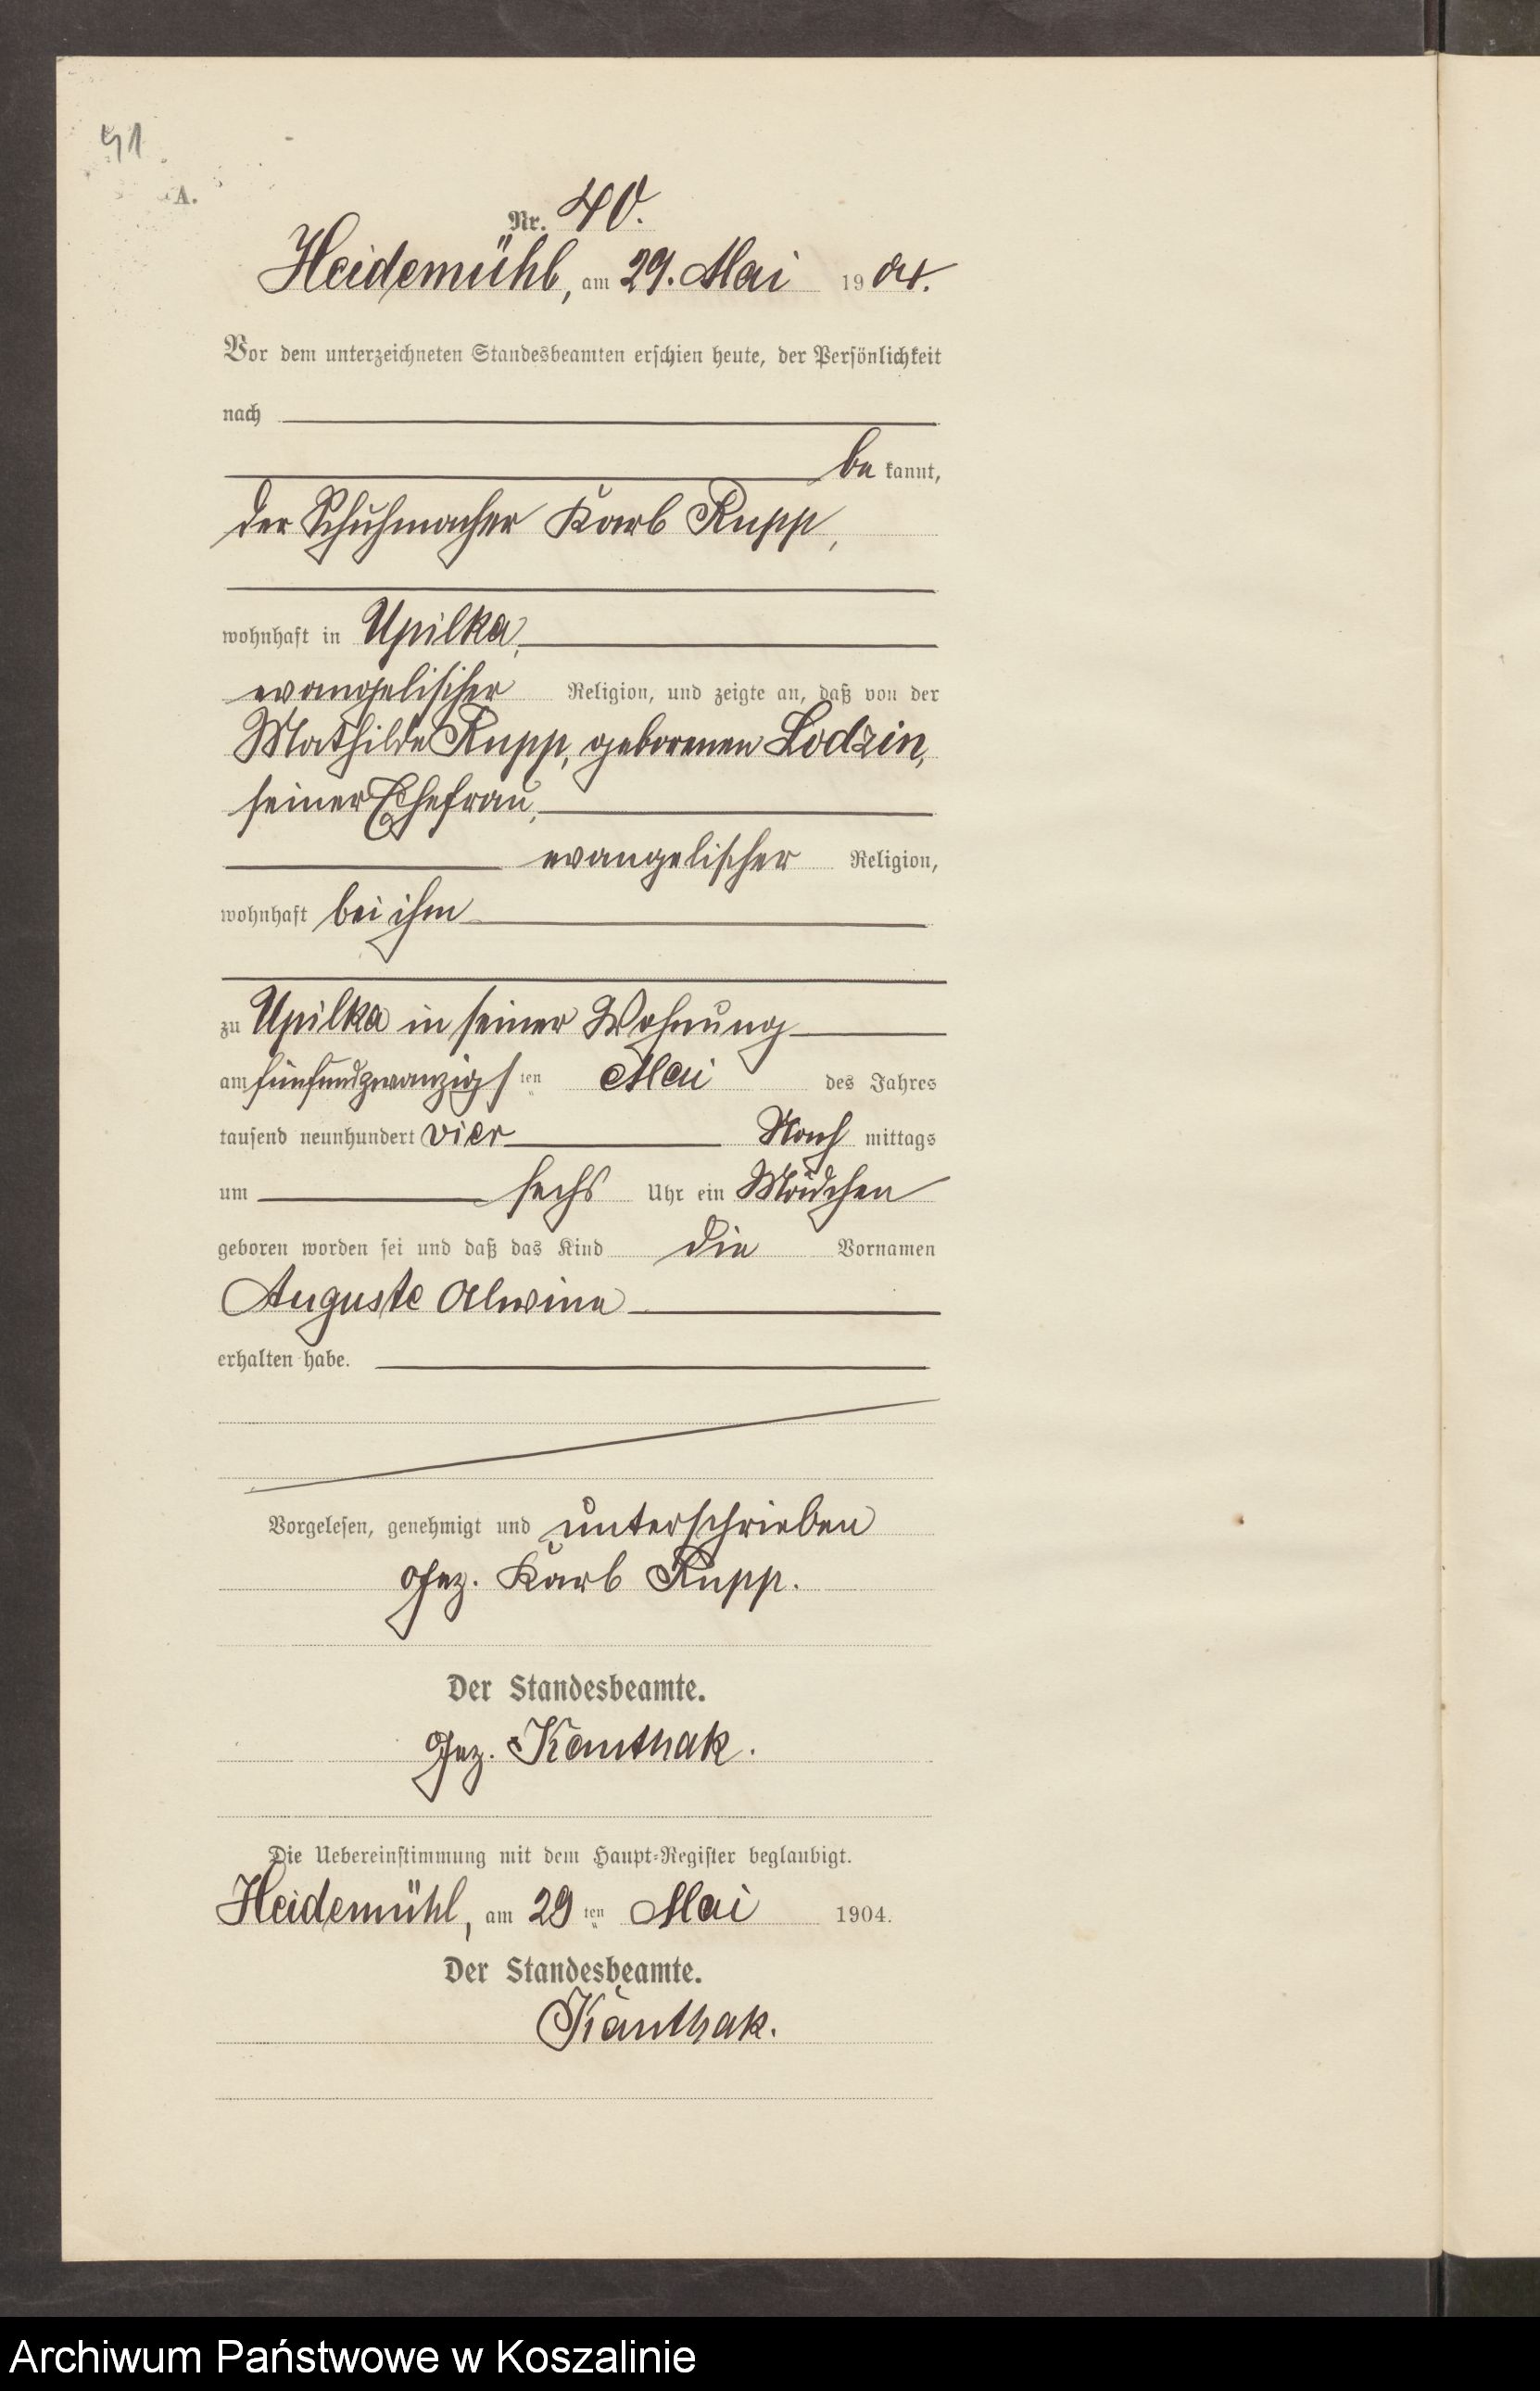 41
A.
Nr. 40.
Heidemühl, am 29. Mai 1904.
Vor dem unterzeichneten Standesbeamten erschien heute, der Persönlichkeit
nach
be kannt,
der Schuhmacher Karl Rupp,
wohnhaft in Upilka,
evangelischer Religion, und zeigte an, daß von der
Mathilde Rupp, geborenen Lodzin,
seiner Ehefrau,
evangelischer Religion,
wohnhaft bei ihm
zu Upilka in seiner Wohnung
am fünfundzwanzigsten Mai des Jahres
tausend neunhundert vier Nach mittags
um sechs Uhr ein Mädchen
geboren worden sei und daß das Kind die Vornamen
Auguste Alwine
erhalten habe.
Vorgelesen, genehmigt und unterschrieben
Gez. Karl Rupp.
Der Standesbeamte.
Gez. Kanthak.
Die Uebereinstimmung mit dem Haupt-Register beglaubigt.
Heidemühl, am 29ten Mai 1904.
Der Standesbeamte.
Kanthak.
Archiwum Państwowe w Koszalinie